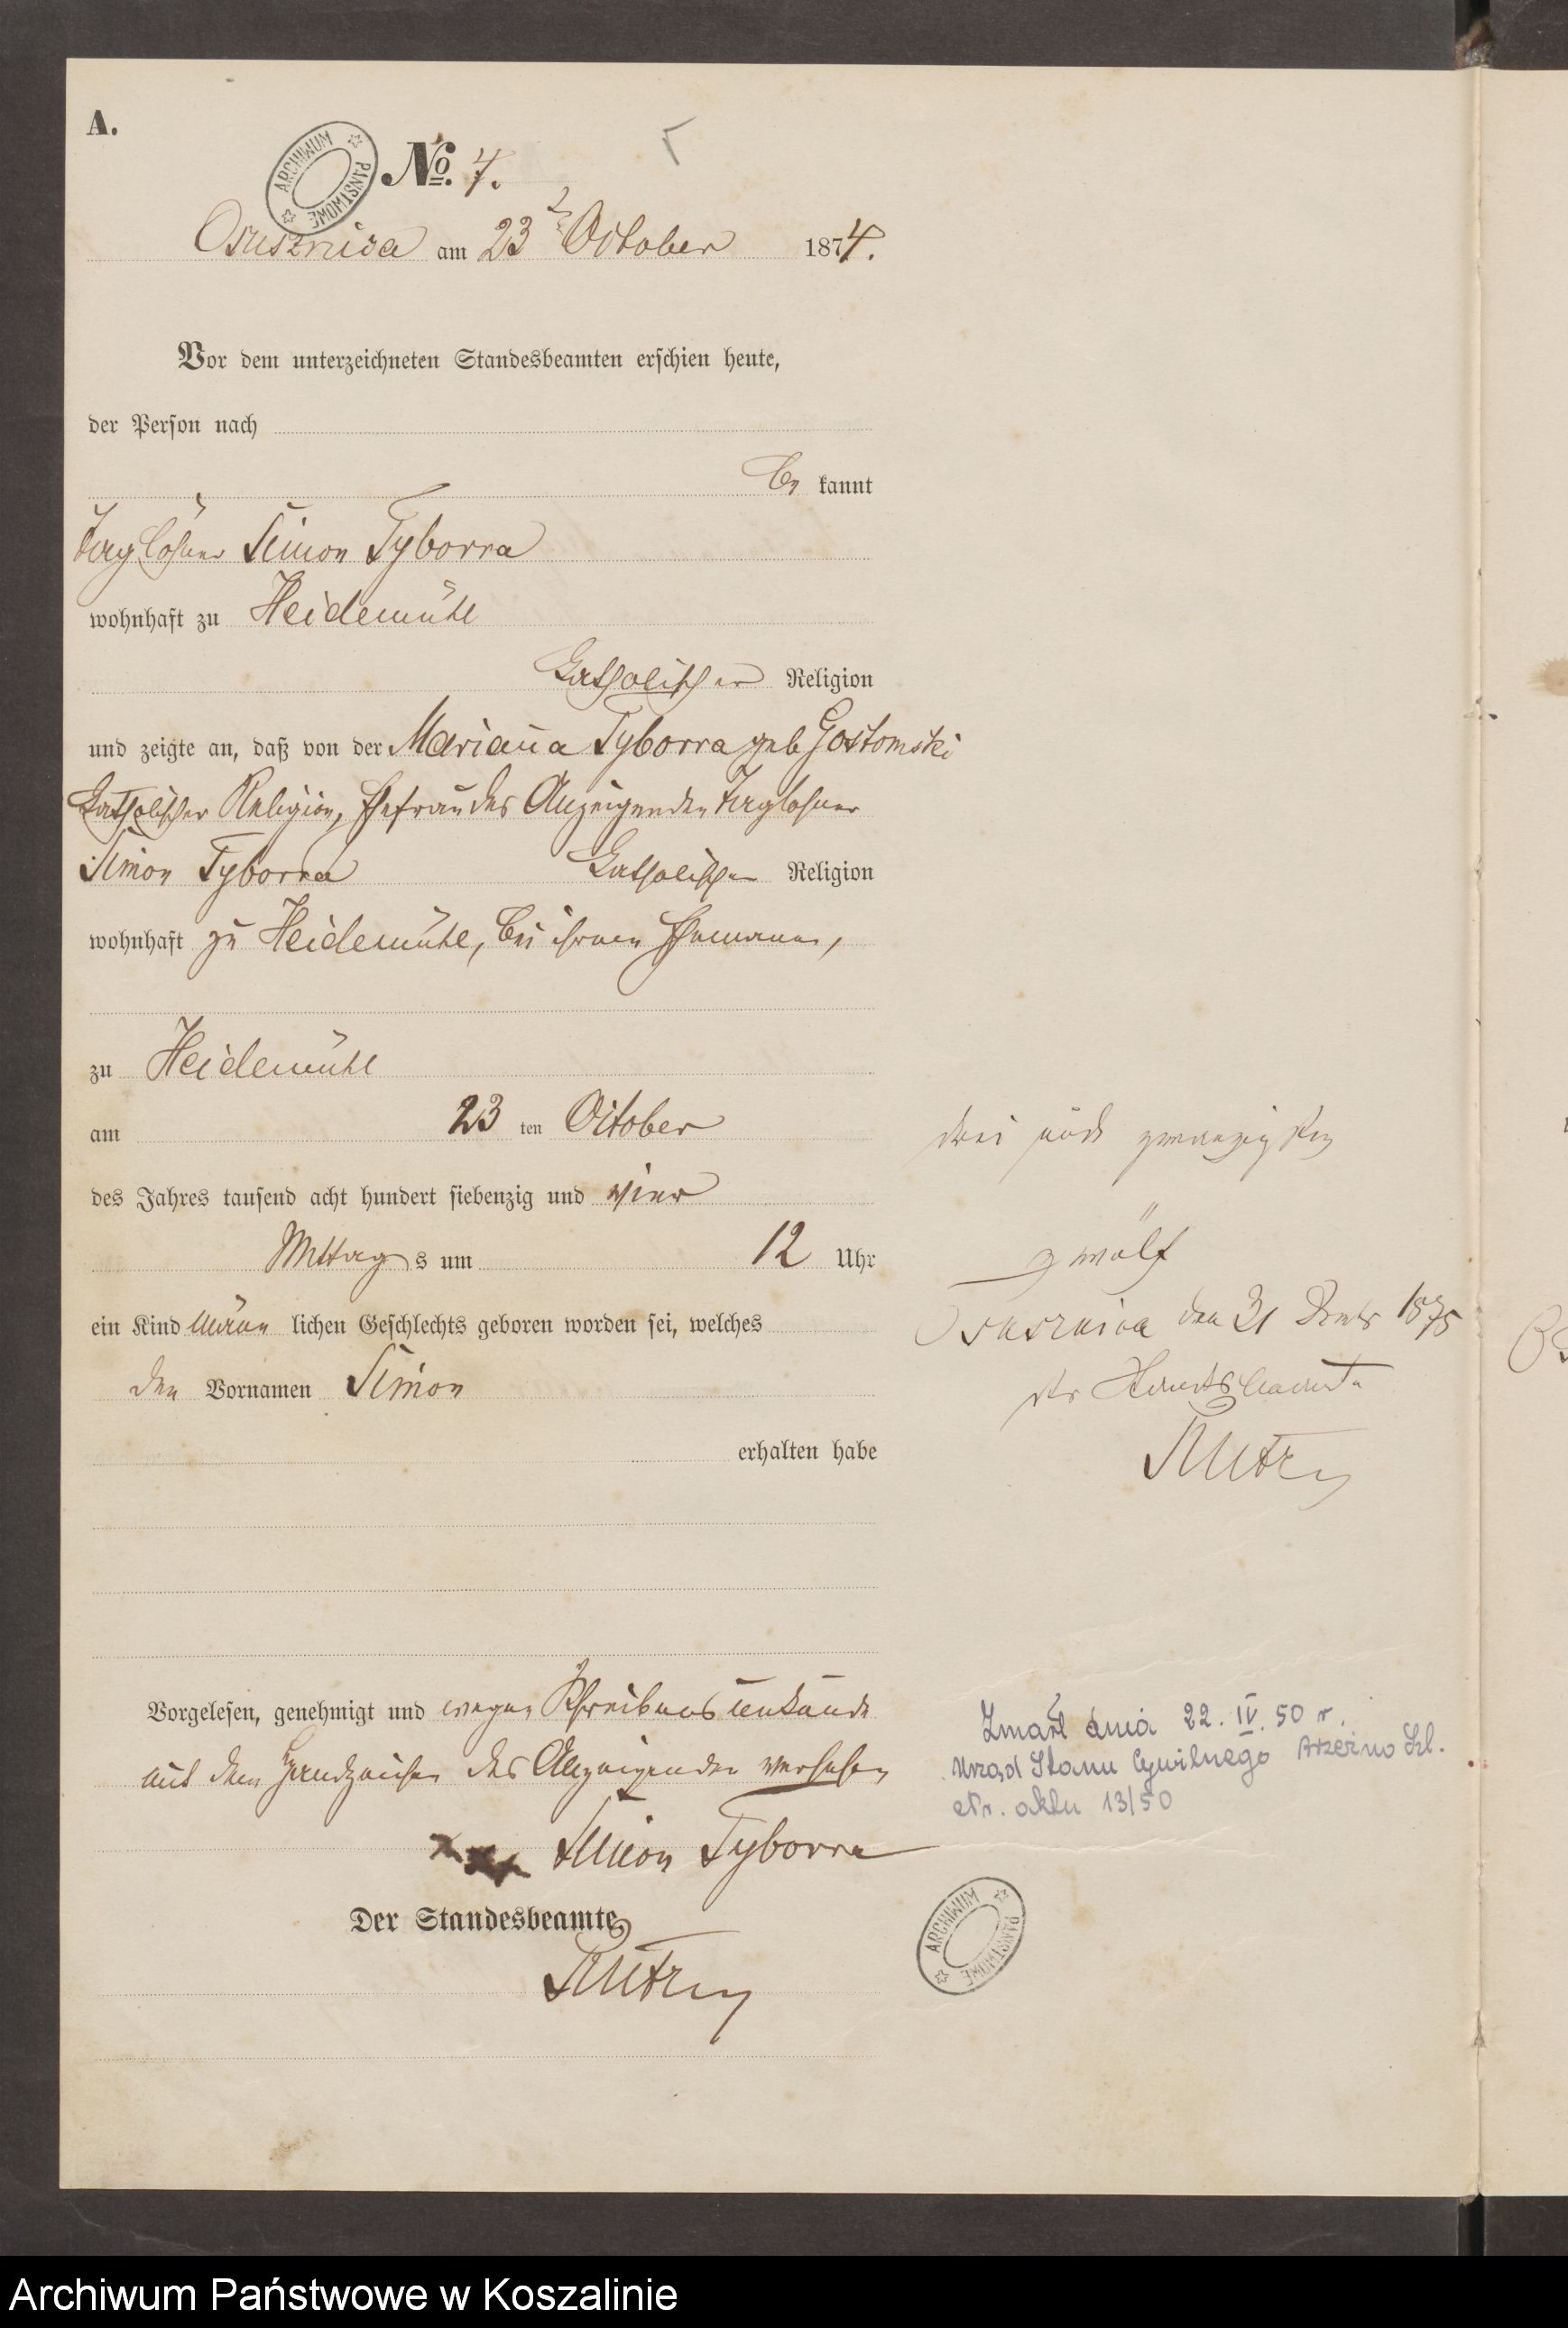 A.
ARCHIWUM PAŃSTWOWE
No. 4.
Osusznica am 23 October 1874.
Vor dem unterzeichneten Standesbeamten erschien heute,
der Person nach
be kannt
Taglöhner Simon Tyborra
wohnhaft zu Heidemühl
Katholischer Religion
und zeigte an, daß von der Marianna Tyborra geb Gostomski
Katholischer Religion, Ehefrau des Anzeigenden Taglohner
Simon Tyborra Katholischer Religion
wohnhaft zu Heidemühl, bei ihrem Ehemann,
zu Heidemühl
am 23 ten October
drei und zwanzigsten
des Jahres tausend acht hundert siebenzig und vier
Mittag s um 12 Uhr
zwölf
ein Kind männ lichen Geschlechts geboren worden sei, welches
Osusznica den 31 1875
den Vornamen Simon
der Standesbeamte
erhalten habe
Vorgelesen, genehmigt und wegen Schreibens unkunde
mit dem Handzeichen des Anzeigenden versehen
xxx Simon Tyborra
Der Standesbeamte
Zmarł dnia 22. IV. 50 r.
Urząd Stanu Cywilnego
Nr. aktu 13/50
ARCHIWUM PAŃSTWOWE
Archiwum Państwowe w Koszalinie